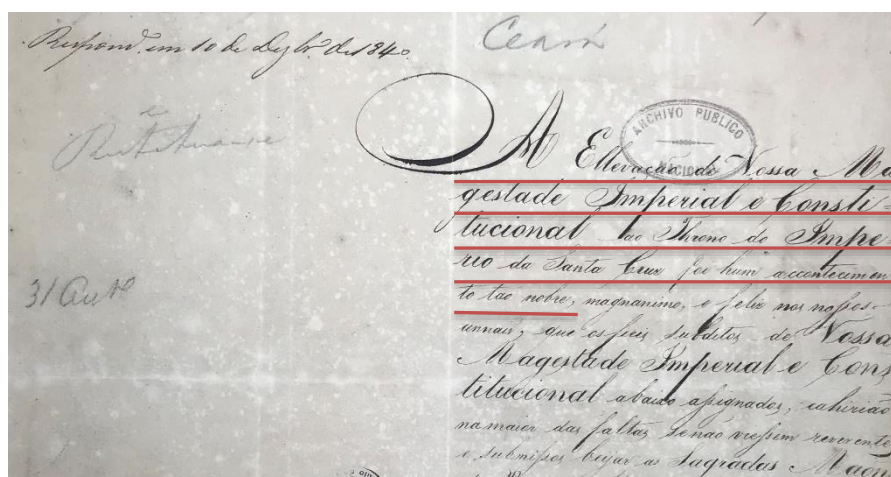 Respond. em 10 de Dezbr.º de 1840
Ceará
ARCHIVO PUBLICO
NACIONAL
A Ellevação de Vossa Ma
gestade Imperial e Consti-
tucional ao Throno do Impe
rio da Santa Cruz foi hum acontecimen
to tão nobre, magnanimo, e feliz nos nossos
annais, que os fieis subditos de Vossa
Magestade Imperial e Cons
titucional abaixo assignados, cahirião
na maior das faltas se não viessem reverente
e submissos beijar as Sagradas Mãon